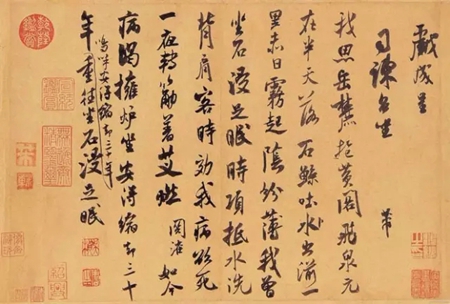 戲成呈
司諫台坐
芾
我思岳麓抱黃閣飛泉元
在半天落石鯨吐水出湔一
里赤日霧起陰紛薄我曾
坐石浸足眠時項抵水洗
背肩客時効我病欲死
一夜轉筋著艾燃如今
病渴擁爐坐安得縮却三十
嗚呼安得縮却三十年
年重往坐石浸足眠